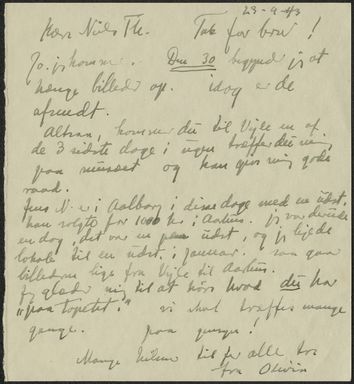 23-9-43
Kære Niels Th. Tak for brev!
Jo, jeg kommer. Den 30 begynder jeg at
hænge billeder op. idag er de
afsendt.
Altsaa, kommer du til Vejle en af
de 3 sidste dage i ugen træffer du mig
paa museet og kan give mig gode
raad.
Jens N. er i Aalborg i disse dage med en udst.
han solgte for 1000 kr i Aarhus. jeg var derude
en dag, det var en udst, og jeg lejede
lokale til en udst. i januar. saa gaar
billederne lige fra Vejle til Aarhus.
Jeg glæder mig til at høre hvad du har
"paa tapetet." vi skal træffes mange
gange. paa gensyn!
Mange hilsner til jer alle tre
fra Olivia